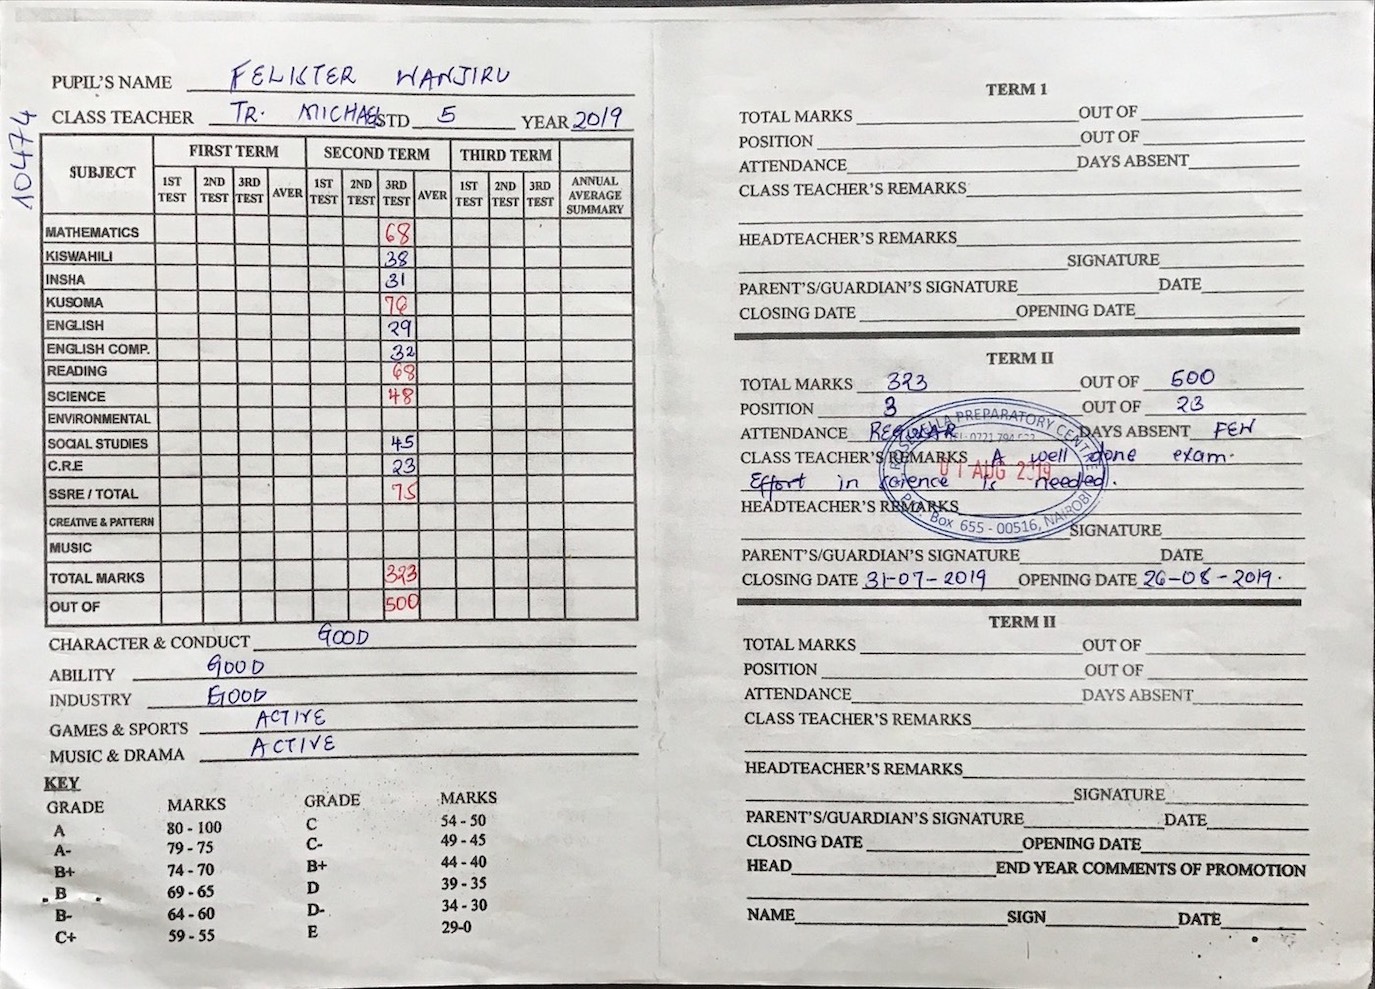 PUPIL'S NAME FELISTER WANJIRU
CLASS TEACHER TR. MICHAEL STD 5 YEAR 2019
10474
SUBJECT FIRST TERM SECOND TERM THIRD TERM
1ST TEST 2ND TEST 3RD TEST AVER 1ST TEST 2ND TEST 3RD TEST AVER 1ST TEST 2ND TEST 3RD TEST ANNUAL AVERAGE SUMMARY
MATHEMATICS 68
KISWAHILI 38
INSHA 31
KUSOMA 76
ENGLISH 29
ENGLISH COMP. 32
READING 68
SCIENCE 48
ENVIRONMENTAL
SOCIAL STUDIES 45
C.R.E 23
SSRE / TOTAL 75
CREATIVE & PATTERN
MUSIC
TOTAL MARKS 323
OUT OF 500
CHARACTER & CONDUCT GOOD
ABILITY GOOD
INDUSTRY GOOD
GAMES & SPORTS ACTIVE
MUSIC & DRAMA ACTIVE
KEY
GRADE MARKS GRADE MARKS
A 80 - 100 C 54 - 50
A- 79 - 75 C- 49 - 45
B+ 74 - 70 B+ 44 - 40
B 69 - 65 D 39 - 35
B- 64 - 60 D- 34 - 30
C+ 59 - 55 E 29-0
TERM 1
TOTAL MARKS OUT OF
POSITION OUT OF
ATTENDANCE DAYS ABSENT
CLASS TEACHER'S REMARKS
HEADTEACHER'S REMARKS
SIGNATURE
PARENT'S/GUARDIAN'S SIGNATURE DATE
CLOSING DATE OPENING DATE
TERM II
TOTAL MARKS 323 OUT OF 500
POSITION 3 OUT OF 23
ATTENDANCE REGULAR DAYS ABSENT FEW
CLASS TEACHER'S REMARKS A well done exam.
Effort in science is needed.
HEADTEACHER'S REMARKS
SIGNATURE
PARENT'S/GUARDIAN'S SIGNATURE DATE
CLOSING DATE 31-07-2019 OPENING DATE 26-08-2019.
PREPARATORY CENTRE
01 AUG 2019
P.O. Box 655 - 00516, NAIROBI
TERM II
TOTAL MARKS OUT OF
POSITION OUT OF
ATTENDANCE DAYS ABSENT
CLASS TEACHER'S REMARKS
HEADTEACHER'S REMARKS
SIGNATURE
PARENT'S/GUARDIAN'S SIGNATURE DATE
CLOSING DATE OPENING DATE
HEAD END YEAR COMMENTS OF PROMOTION
NAME SIGN DATE